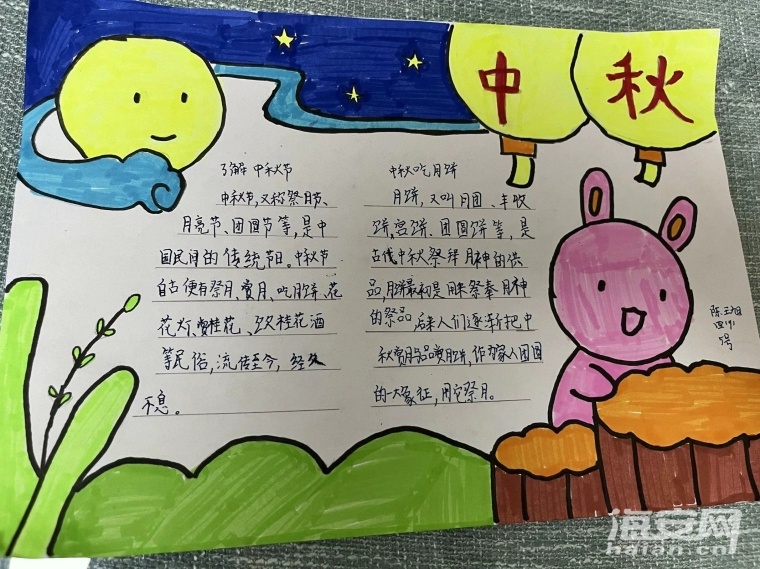 中秋
了解中秋节
中秋节,又称祭月节、
月亮节、团圆节等,是中
国民间的传统节日。中秋节
自古便有祭月、赏月、吃月饼、花
花灯、赏桂花、饮桂花酒
等民俗,流传至今,经久
不息。
中秋吃月饼
月饼,又叫月团、丰收
饼,宫饼、团圆饼等,是
古代中秋祭拜月神的供
品,月饼最初是用来祭奉月神
的祭品 后来人们逐渐把中
秋赏月与品赏月饼,作为家人团圆
的一大象征,用它祭月。
陈
四
号
海安网
haian.cn